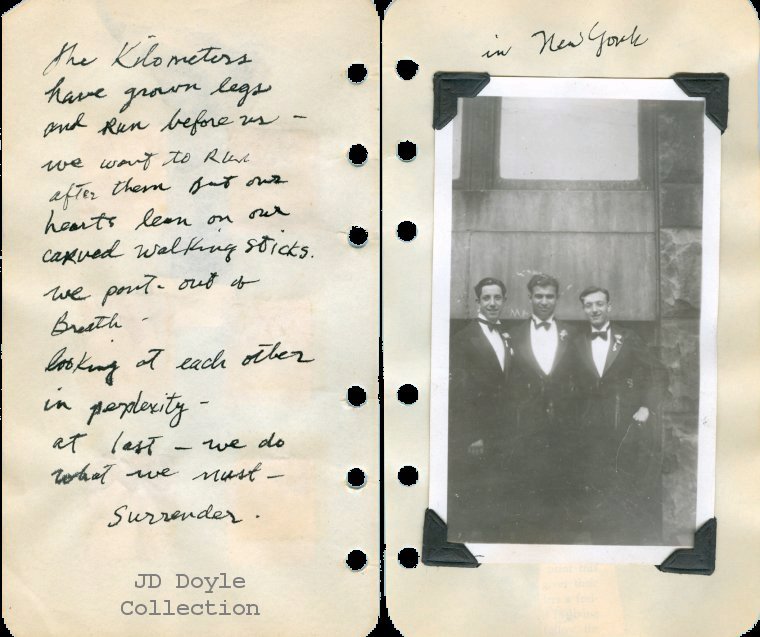 the Kilometers
have grown legs
and Run before us –
we want to Run
after them but our
hearts lean on our
carved walking sticks.
we pant – out of
Breath –
looking at each other
in perplexity –
at last – we do
what we must –
Surrender.
JD Doyle
Collection
in New York